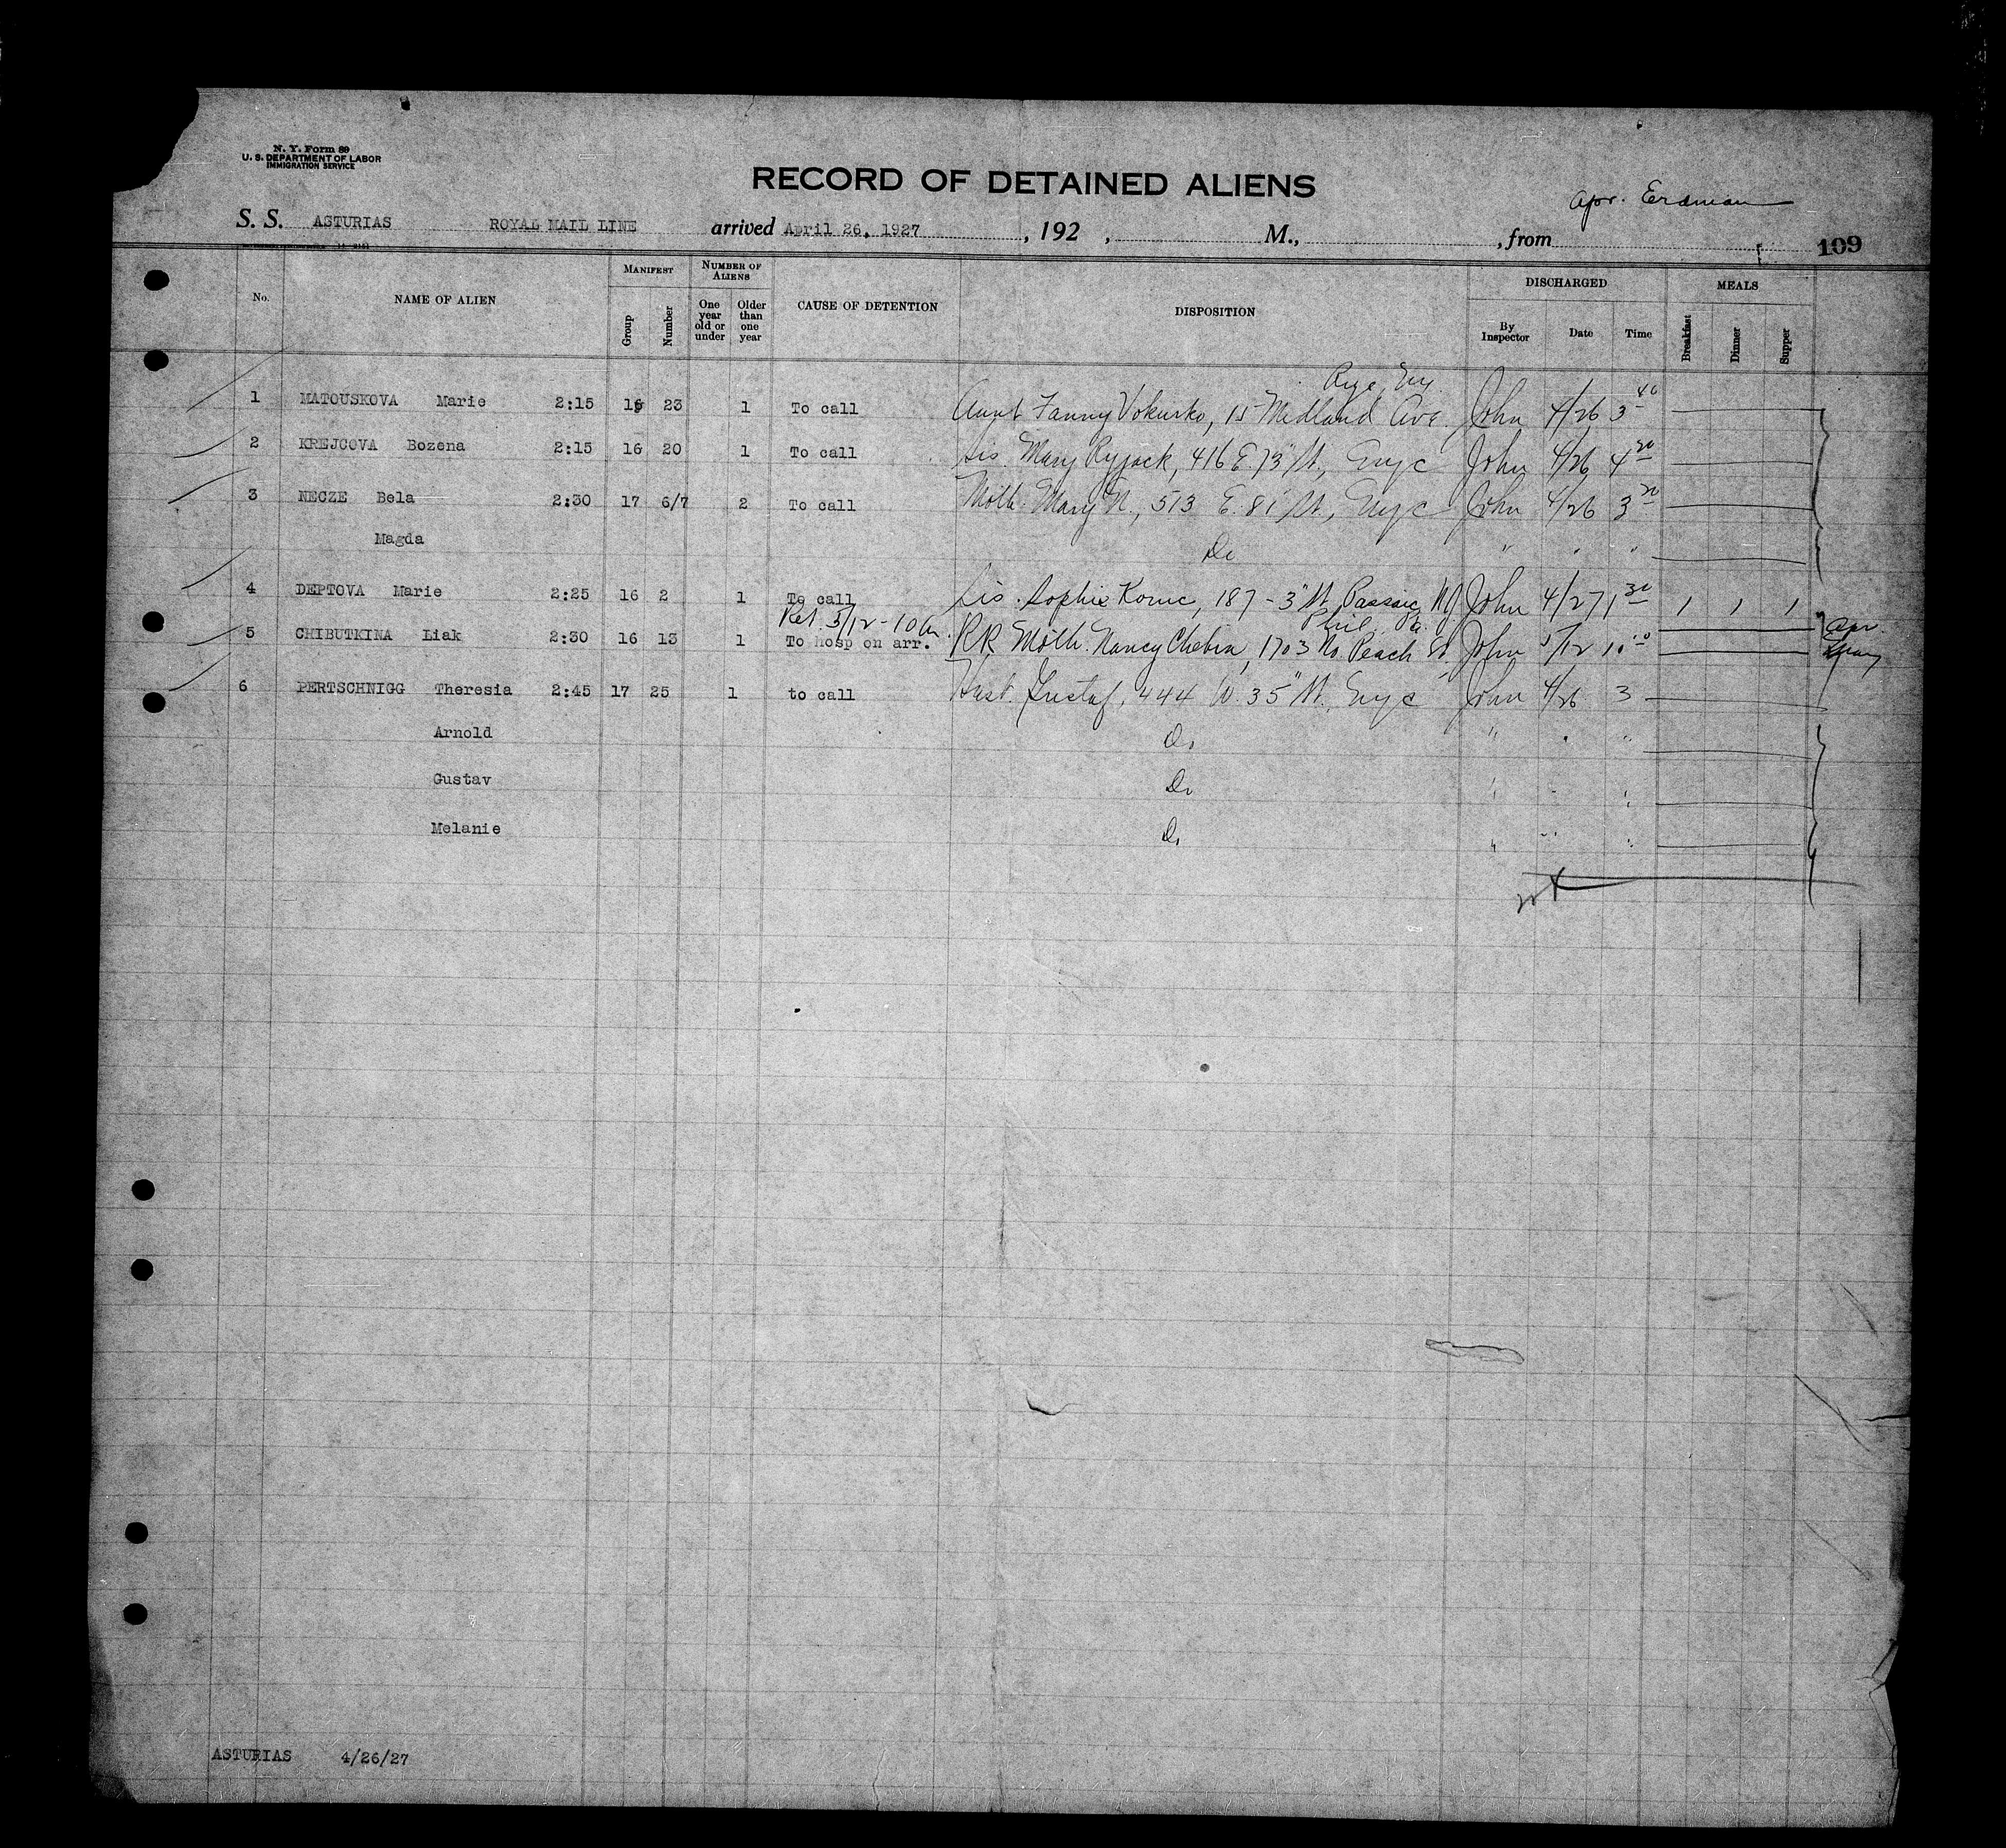 N. Y. Form 89
U. S. DEPARTMENT OF LABOR
IMMIGRATION SERVICE
RECORD OF DETAINED ALIENS
Apr. Erdman
S. S. ASTURIAS ROYAL MAIL LINE arrived April 26, 1927, 192 , M., , from 109
No. NAME OF ALIEN MANIFEST Group Number NUMBER OF ALIENS One year old or under Older than one year CAUSE OF DETENTION DISPOSITION DISCHARGED By Inspector Date Time MEALS Breakfast Dinner Supper
Rye, Ny
1 MATOUSKOVA Marie 2:15 16 23 1 To call Aunt Fanny Vokurko, 15 Midland Ave. John 4/26 3 40
2 KREJCOVA Bozena 2:15 16 20 1 To call Sis. Mary Ryjack, 416 E. 73" St., Nyc John 4/26 4 20
3 NECZE Bela 2:30 17 6/7 2 To call Moth. Mary N., 513 E. 81 St., Nyc John 4/26 3 20
Magda Do " " "
4 DEPTOVA Marie 2:25 16 2 1 To call Sis. Sophie 187 - 3" St. Passaic NJ John 4/27 1 30 1 1 1
Ret. 5/12 - 10 am. Phil. Pa.
5 CHIBUTKINA Liak 2:30 16 13 1 To hosp on arr. RR Moth. Nancy Chebin, 1703 No. Peach St. John 5/12 10 00 Apr. May
6 PERTSCHNIGG Theresia 2:45 17 25 1 to call Husb. Gustaf, 444 W. 35" St. Nyc John 4/26 3
Arnold Do " " "
Gustav Do
Melanie Do
ASTURIAS 4/26/27